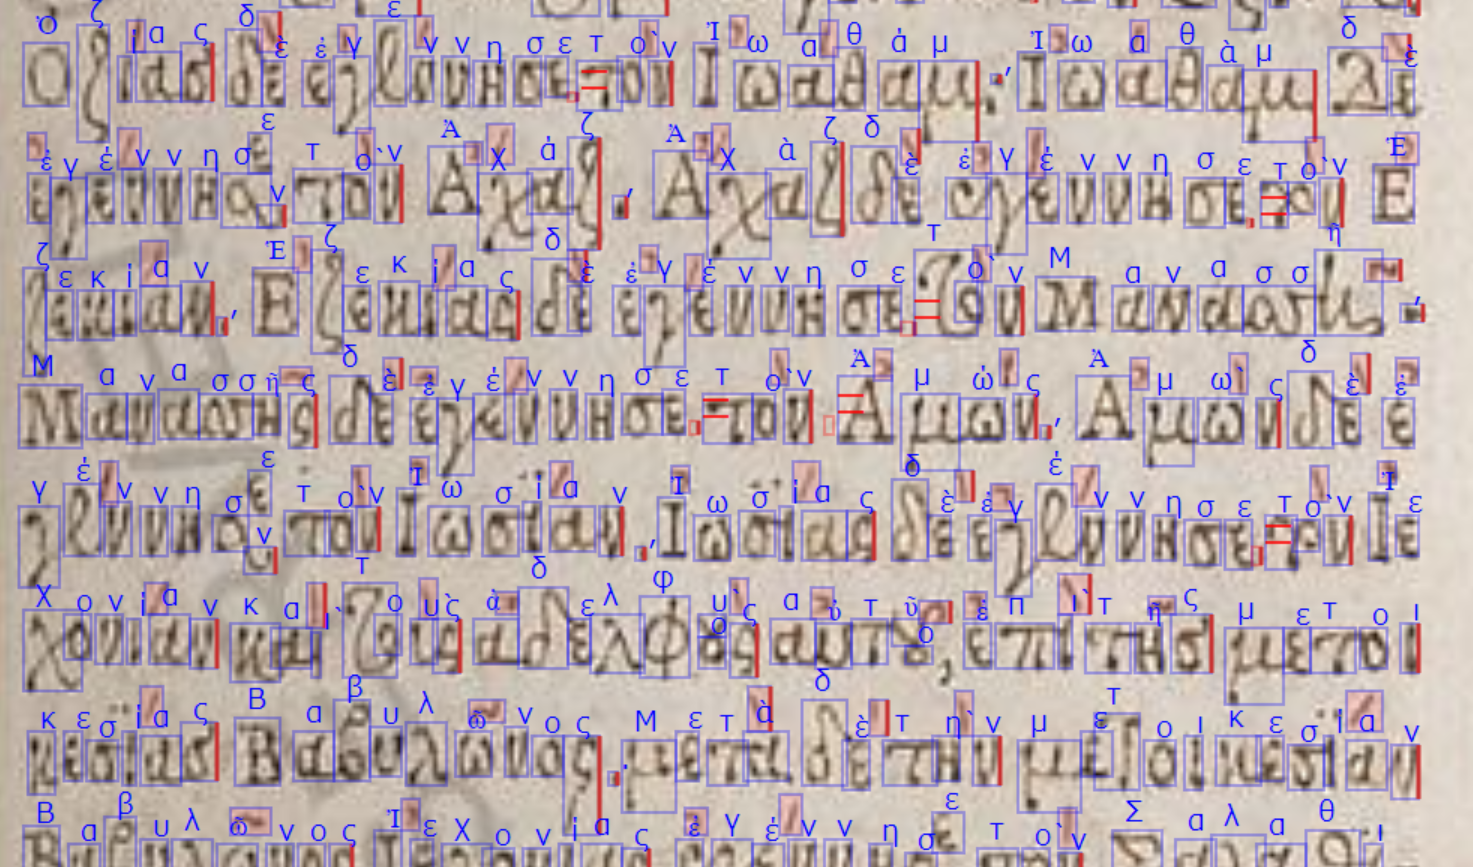 Ὀζίας δὲ ἐγέννησε τὸν Ἰωαθάμ, Ἰωαθὰμ δὲ
ἐγέννησεν τὸν Ἀχάζ, Ἀχὰζ δὲ ἐγέννησε τὸν Ἐ
ζεκίαν, Ἐζεκίας δὲ ἐγέννησε τὸν Μανασσῆ,
Μανασσῆς δὲ ἐγέννησε τὸν Ἀμών, Ἀμὼν δὲ ἐ
γέννησεν τὸν Ἰωσίαν, Ἰωσίας δὲ ἐγέννησε τὸν Ἰε
χονίαν καὶ τοὺς ἀδελφοὺς αὐτοῦ, ἐπὶ τῆς μετοι
κεσίας Βαβυλῶνος. μετὰ δὲ τὴν μετοικεσίαν
Βαβυλῶνος Ἰεχονίας ἐγέννησε τὸν Σαλαθι